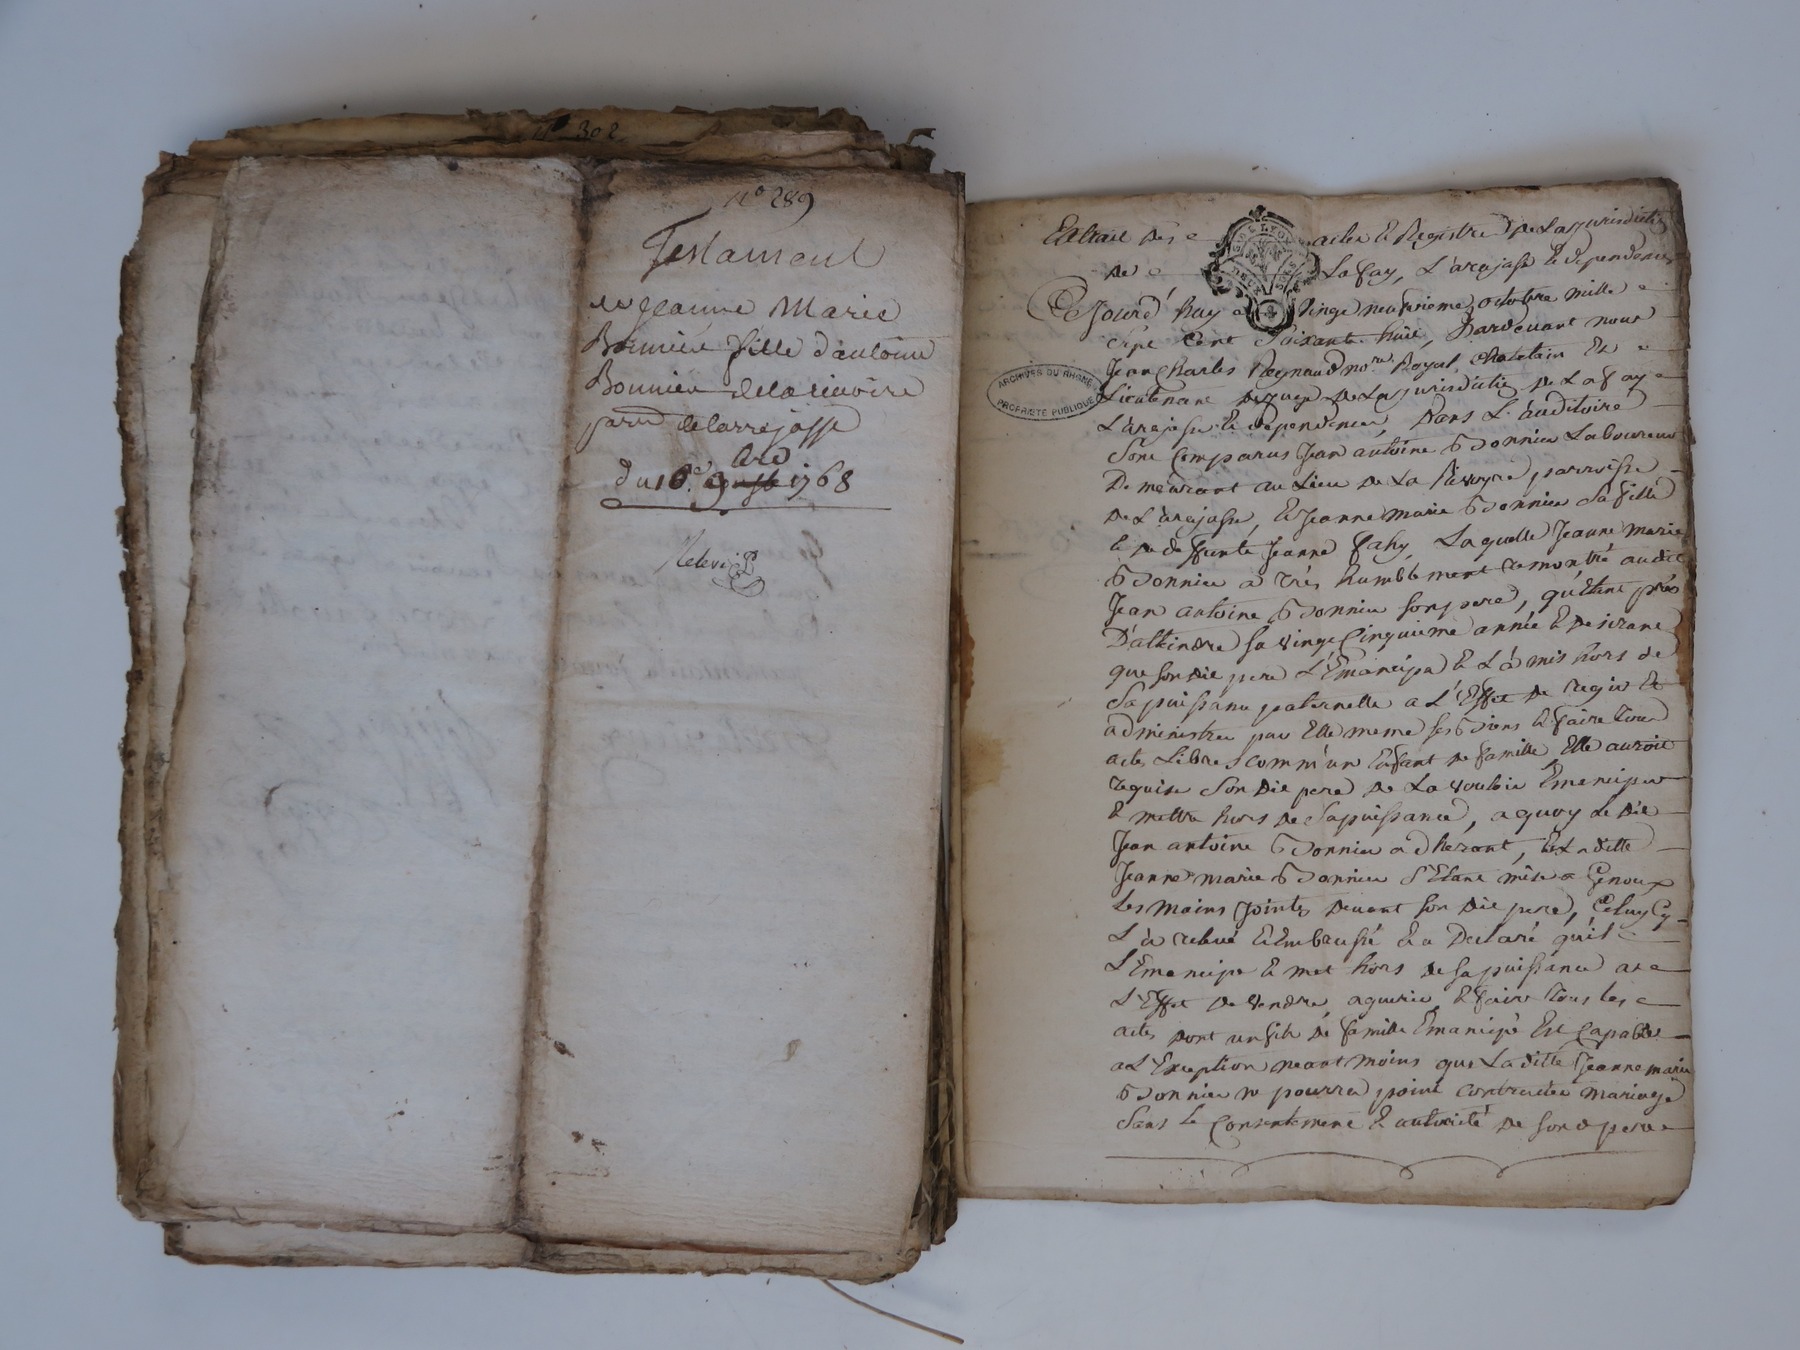 N° 302
N° 289
Testament
de Jeanne Marie
Bonnier fille d'antoine
Bonnier de la rivoire
parr de larrejasse
du 16e 9bre 1768
Extrait des actes & Registre de La jurisdictio
de La fay, L'arajasse & dependances
Cejourd'huy vingt neufvieme octobre mille
Sept Cent Soixante huit, Pardevant nous
Jean Charles Reynaud nore Royal, chatelain Et
Lieutenant de juge de La jurisdictio de La fay
L'arajasse & dependances, Dans L'auditoire
Sont Comparus Jean antoine Bonnier Laboureur
Demeurant au Lieu de La Rivoyre parroisse
de L'arajasse, & Jeanne marie Bonnier Sa fille
& de deffunte Jeanne fahy, Laquelle Jeanne marie
Bonnier a très humblement remontré audit
Jean antoine Bonnier son pere, qu'étant près
D'atteindre sa vingt Cinquieme année & desirant
que son dit pere L'Emancipa & L'à mis hors de
Sa puissance paternelle a L'Effet de regir Et
administrer par Elle meme ses Biens & faire tous
actes Libres comm'un Enfant de famille, Elle auroit
requise Son dit pere de La vouloir Emanciper
& mettre hors de Sa puissance, a quoy Le dit
Jean antoine Bonnier adherant, & La ditte
Jeanne marie Bonnier S'Etant mise a Genoux
Les mains jointes devant son dit pere, Celuy Cy
L'à relevé & Embrassé & a Declaré qu'il
L'Emancipe & met hors de sa puissance a
L'Effet de vendre, aquerir, & faire tous les
actes dont un fils de famille Emancipé Est Capable
a L'Exception neantmoins que La ditte Jeanne marie
Bonnier ne pourra point contracter mariage
Sans le Consentement & autorité de son pere
ARCHIVES DU RHONE
PROPRIÉTÉ PUBLIQUE